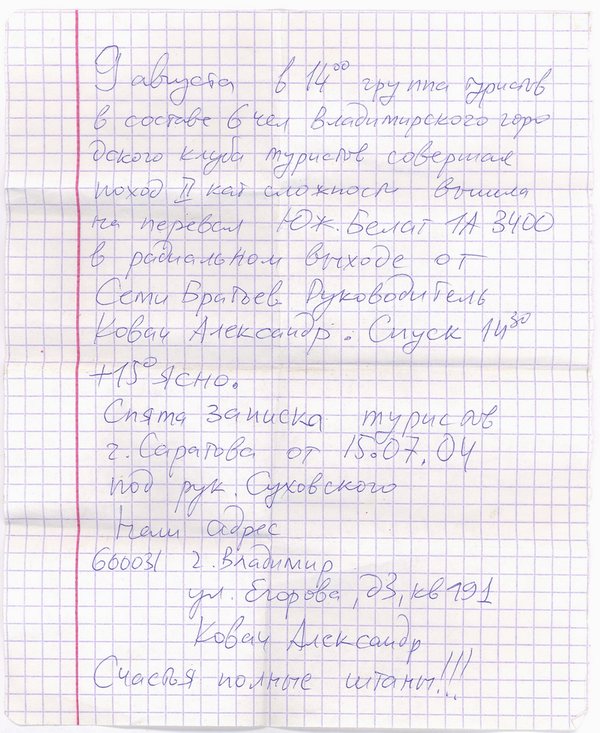 9 августа в 14⁰⁰ группа туристов
в составе 6 чел Владимирского горо
дского клуба туристов совершая
поход II кат сложности вышла
на перевал Юж. Белат 1А 3400
в радиальном выходе от
Семи Братьев Руководитель
Ковач Александр. Спуск 14³⁰
+15° Ясно.
Снята записка туристов
г. Саратова от 15.07.04
под рук. Суховского
Наш адрес
600031 г. Владимир
ул. Егорова, д3, кв 191
Ковач Александр
Счастья полные штаны!!!